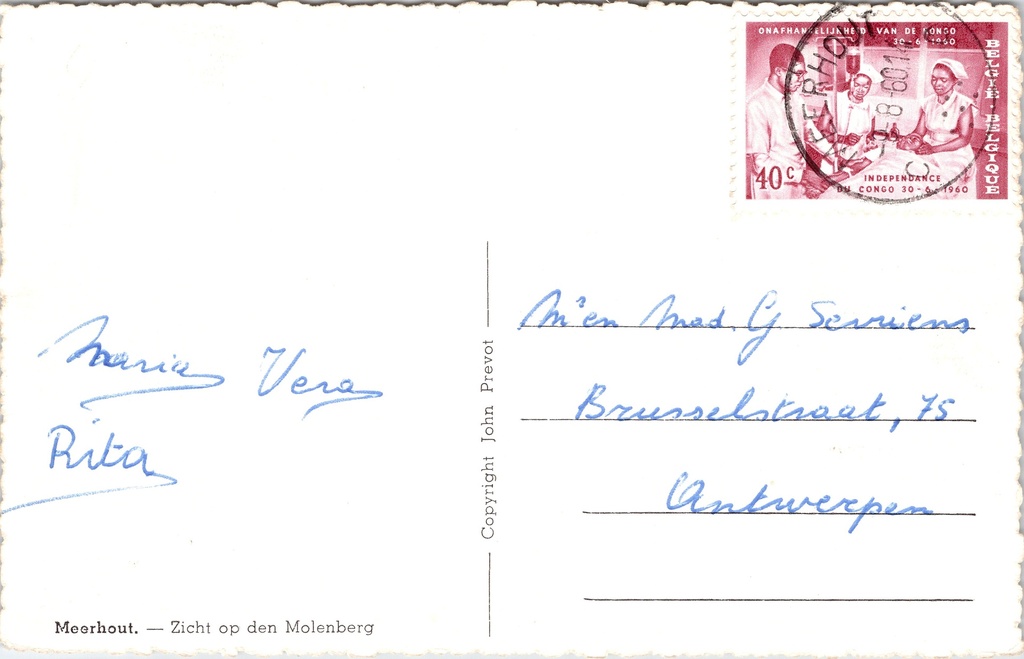 ONAFHANKELIJKHEID VAN DE KONGO
30-6-1960
BELGIË-BELGIQUE
40c
INDEPENDANCE
DU CONGO 30-6-1960
MEERHOUT
-8-60
C
M'en Mad. G Sevriens
Brusselstraat, 75
Antwerpen
Maria Vera
Rita
Copyright John Prevot
Meerhout. — Zicht op den Molenberg